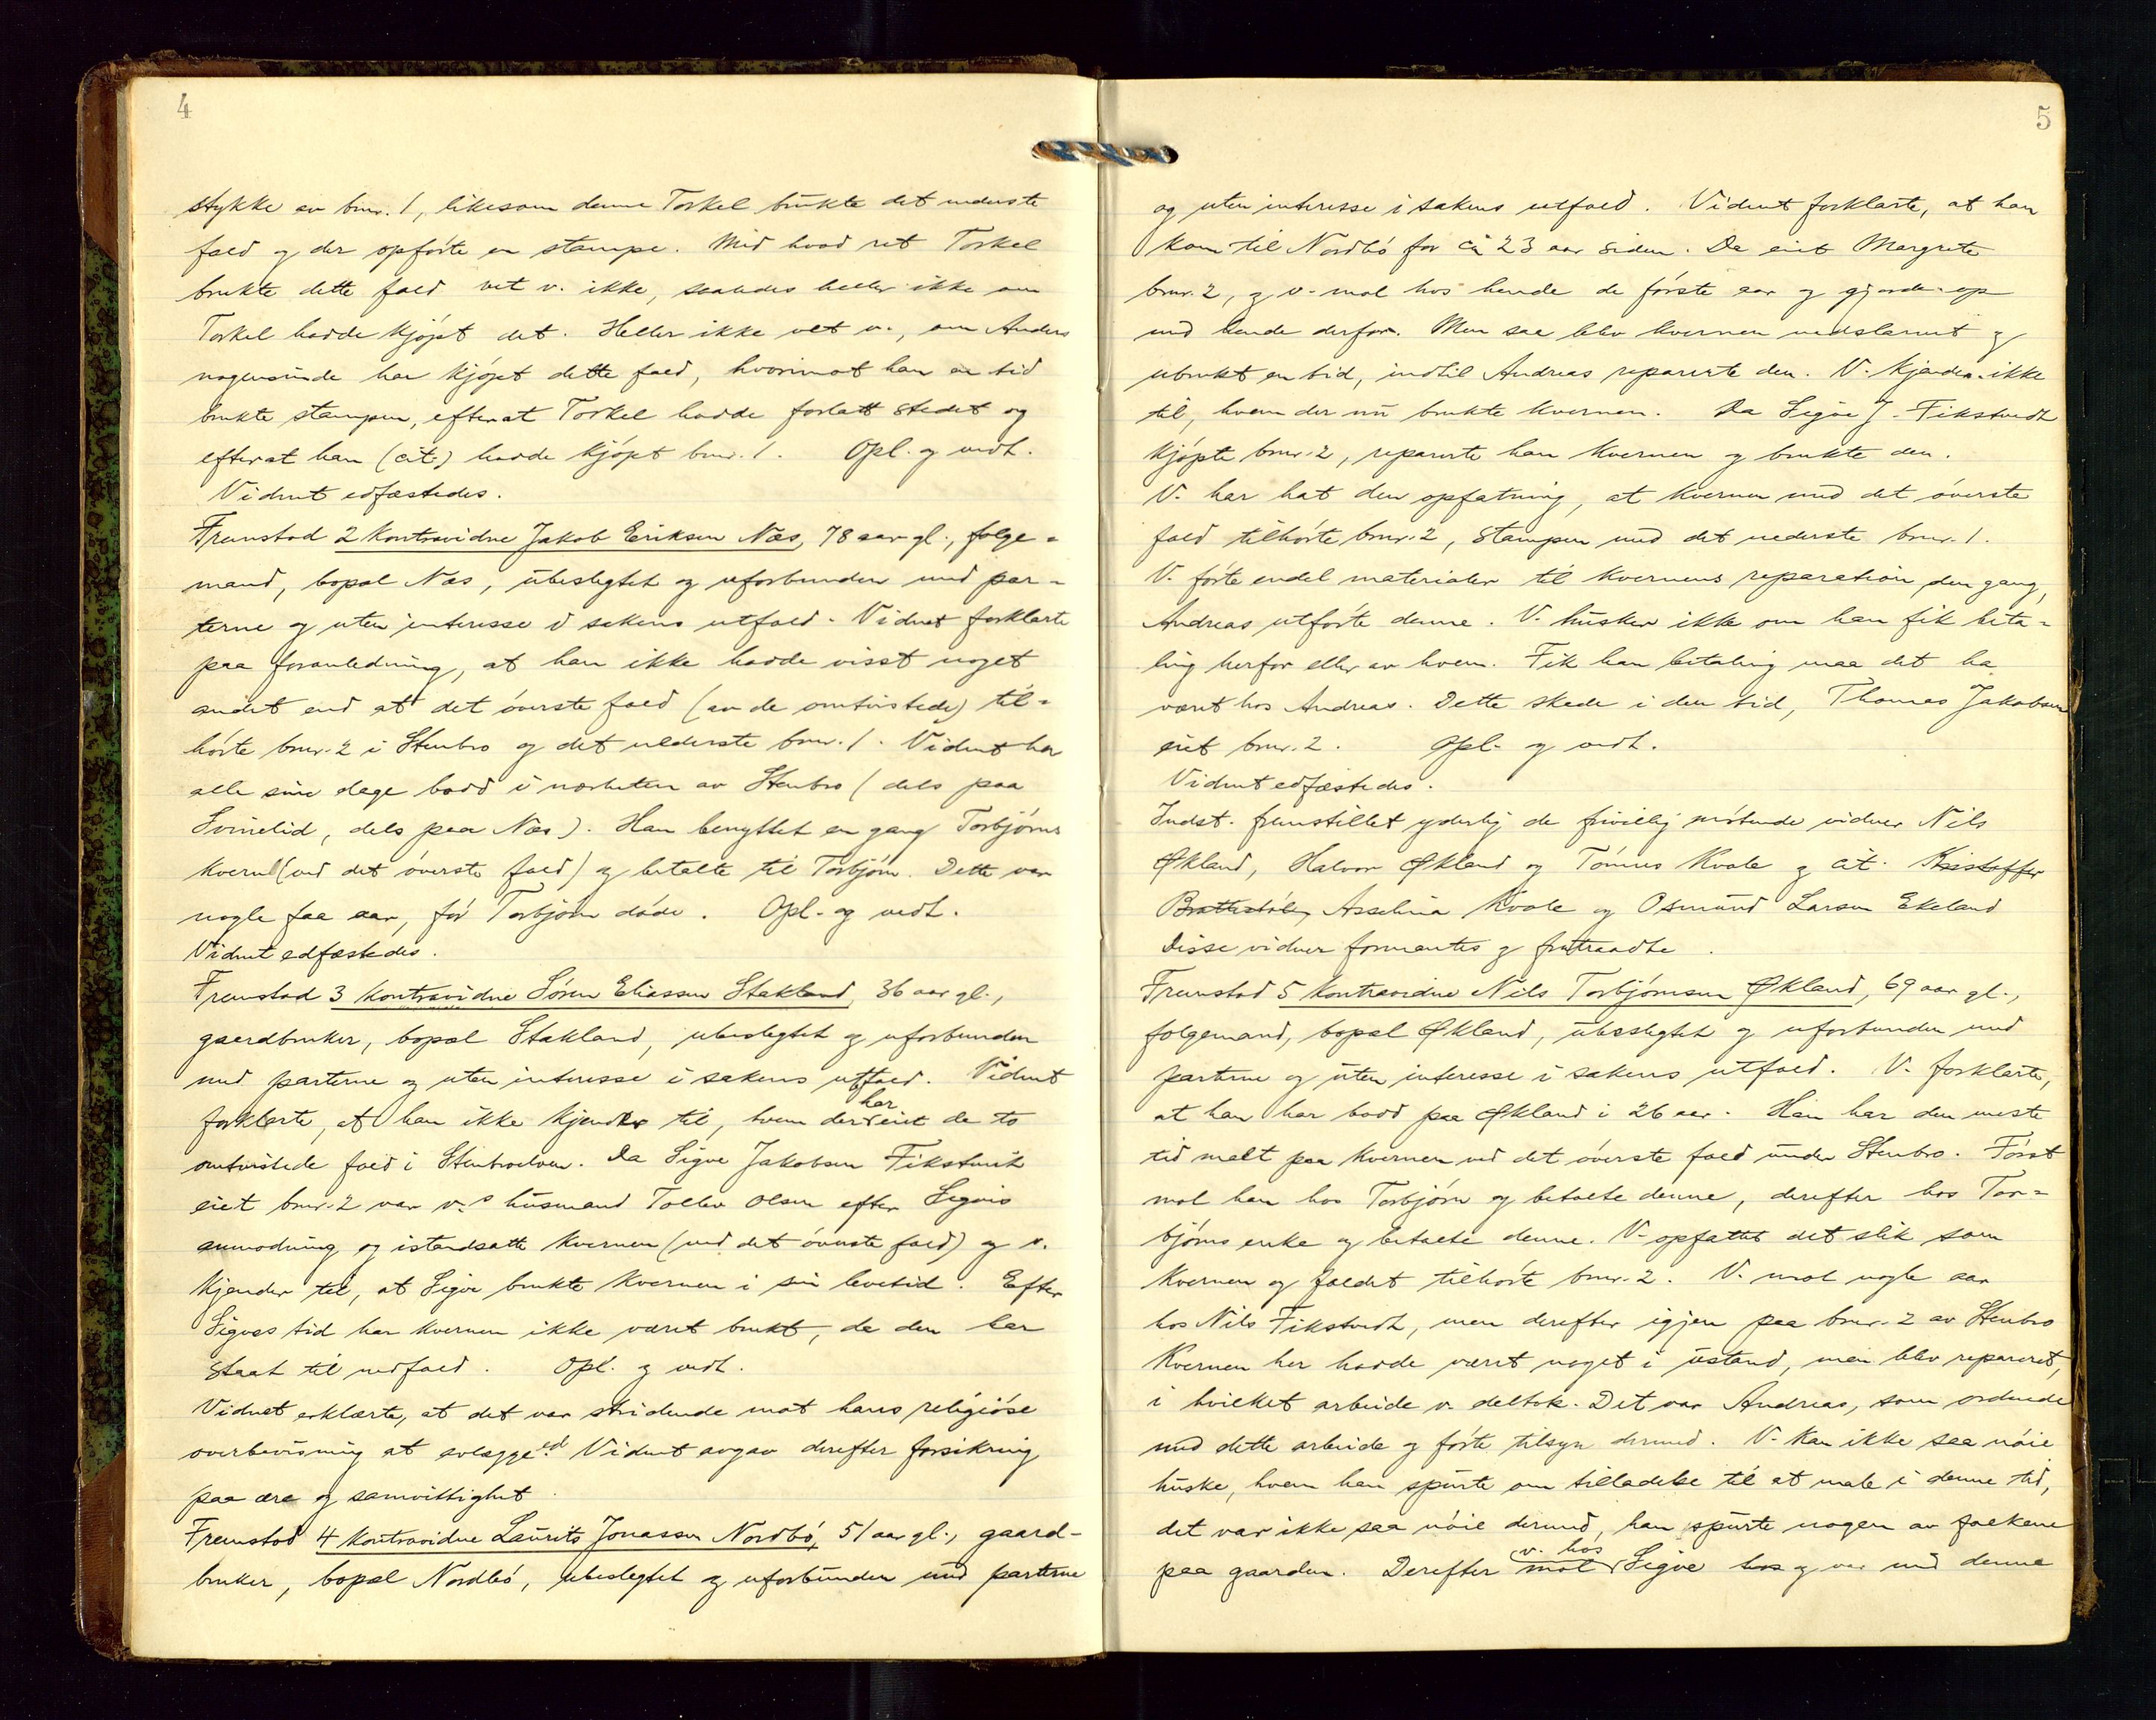 4
stykke av bnr. 1, likesom denne Torkel brukte det nederste
fald og der opførte en stampe. Med hvad ret Torkel
brukte dette fald vet v. ikke, saaledes heller ikke om
Torkel hadde kjøpt det. Heller ikke vet v., om Anders
nogensinde har kjøpt dette fald, hvorimot han en tid
brukte stampen, efterat Torkel hadde forlatt stedet og
efterat han (cit.) hadde kjøpt bnr. 1. Opl. og vedt.
Vidnet edfæstedes.
Fremstod 2 kontravidne Jakob Eriksen Næs, 78 aar gl., folge-
mand, bopæl Næs, ubeslegtet og uforbunden med par-
terne og uten interesse i sakens utfald. Vidnet forklarte
paa foranledning, at han ikke hadde visst noget
andet end at det øverste fald (av de omtvistede) til-
hørte bnr. 2 i Stenbro og det nederste bnr. 1. Vidnet har
alle sine dage bodd i nærheten av Stenbro (dels paa
Svinelid, dels paa Næs). Han benyttet en gang Torbjørns
kvern (ved det øverste fald) og betalte til Torbjørn. Dette var
nogle faa aar, før Torbjørn døde. Opl. og vedt.
Vidnet edfæstedes.
Fremstod 3 kontravidne Søren Eliassen Stakland, 36 aar gl.,
gaardbruker, bopæl Stakland, ubeslegtet og uforbunden
med parterne og uten interesse i sakens utfald. Vidnet
forklarte, at han ikke kjender til, hvem der har eiet de to
omtvistede fald i Stenbroelven. Da Sigve Jakobsen Fikstveit
eiet bnr. 2 var v.s husmand Tollev Olsen efter Sigves
anmodning og istandsatte kvernen (ved det øverste fald) og v.
kjender til, at Sigve brukte kvernen i sin levetid. Efter
Sigves tid har kvernen ikke været brukt, da den har
staat til nedfald. Opl. og vedt.
Vidnet erklærte, at det var stridende mot hans religiøse
overbevisning at avlægge ed. Vidnet avgav derefter forsikring
paa ære og samvittighet.
Fremstod 4 kontravidne Laurits Jonassen Nordbø, 51 aar gl., gaard-
bruker, bopæl Nordbø, ubeslegtet og uforbunden med parterne
5
og uten interesse i sakens utfald. Vidnet forklarte, at han
kom til Nordbø for ca 23 aar siden. Da eiet Margrete
bnr. 2, og v. mol hos hende de første aar og gjorde op
med hende derfor. Men saa blev kvernen nedslemt og
ubrukt en tid, indtil Andreas reparerte den. V. kjender ikke
til, hvem der nu brukte kvernen. Da Sigve J. Fikstvedt
kjøpte bnr. 2, reparerte han kvernen og brukte den.
V. har hat den opfatning, at kvernen med det øverste
fald tilhørte bnr. 2, stampen med det nederste bnr. 1.
V. førte endel materialer til kvernens reparation den gang,
Andreas utførte denne. V. husker ikke om han fik beta-
ling herfor eller av hvem. Fik han betaling maa det ha
været hos Andreas. Dette skede i den tid, Thomas Jakobsen
eiet bnr. 2. Opl. og vedt.
Vidnet edfæstedes.
Indst. fremstillet yderlig de frivillig møtende vidner Nils
Økland, Halvor Økland og Tønnes Kvale og cit. Kristoffer
Brattestøle, Asselina Kvale og Osmund Larsen Ekeland
Disse vidner formantes og fratraadte.
Fremstod 5 kontravidne Nils Torbjørnsen Økland, 69 aar gl.,
folgemand, bopæl Økland, ubeslegtet og uforbunden med
parterne og uten interesse i sakens utfald. V. forklarte,
at han har bodd paa Økland i 26 aar. Han har den meste
tid malt paa kvernen ved det øverste fald under Stenbro. Først
mol han hos Torbjørn og betalte denne, derefter hos Tor-
bjørns enke og betalte denne. V. opfattet det slik som
kvernen og faldet tilhørte bnr. 2. V. mol nogle aar
hos Nils Fikstvedt, men derefter igjen paa bnr. 2 av Stenbro
Kvernen her hadde været noget i ustand, men blev reparert,
i hvilket arbeide v. deltok. Det var Andreas, som ordnede
med dette arbeide og førte tilsyn dermed. V. kan ikke saa nøie
huske, hvem han spurte om tilladelse til at male i denne tid,
det var ikke saa nøie dermed, han spurte nogen av folkene
paa gaarden. Derefter mol v. hos Sigve hos og var med denne